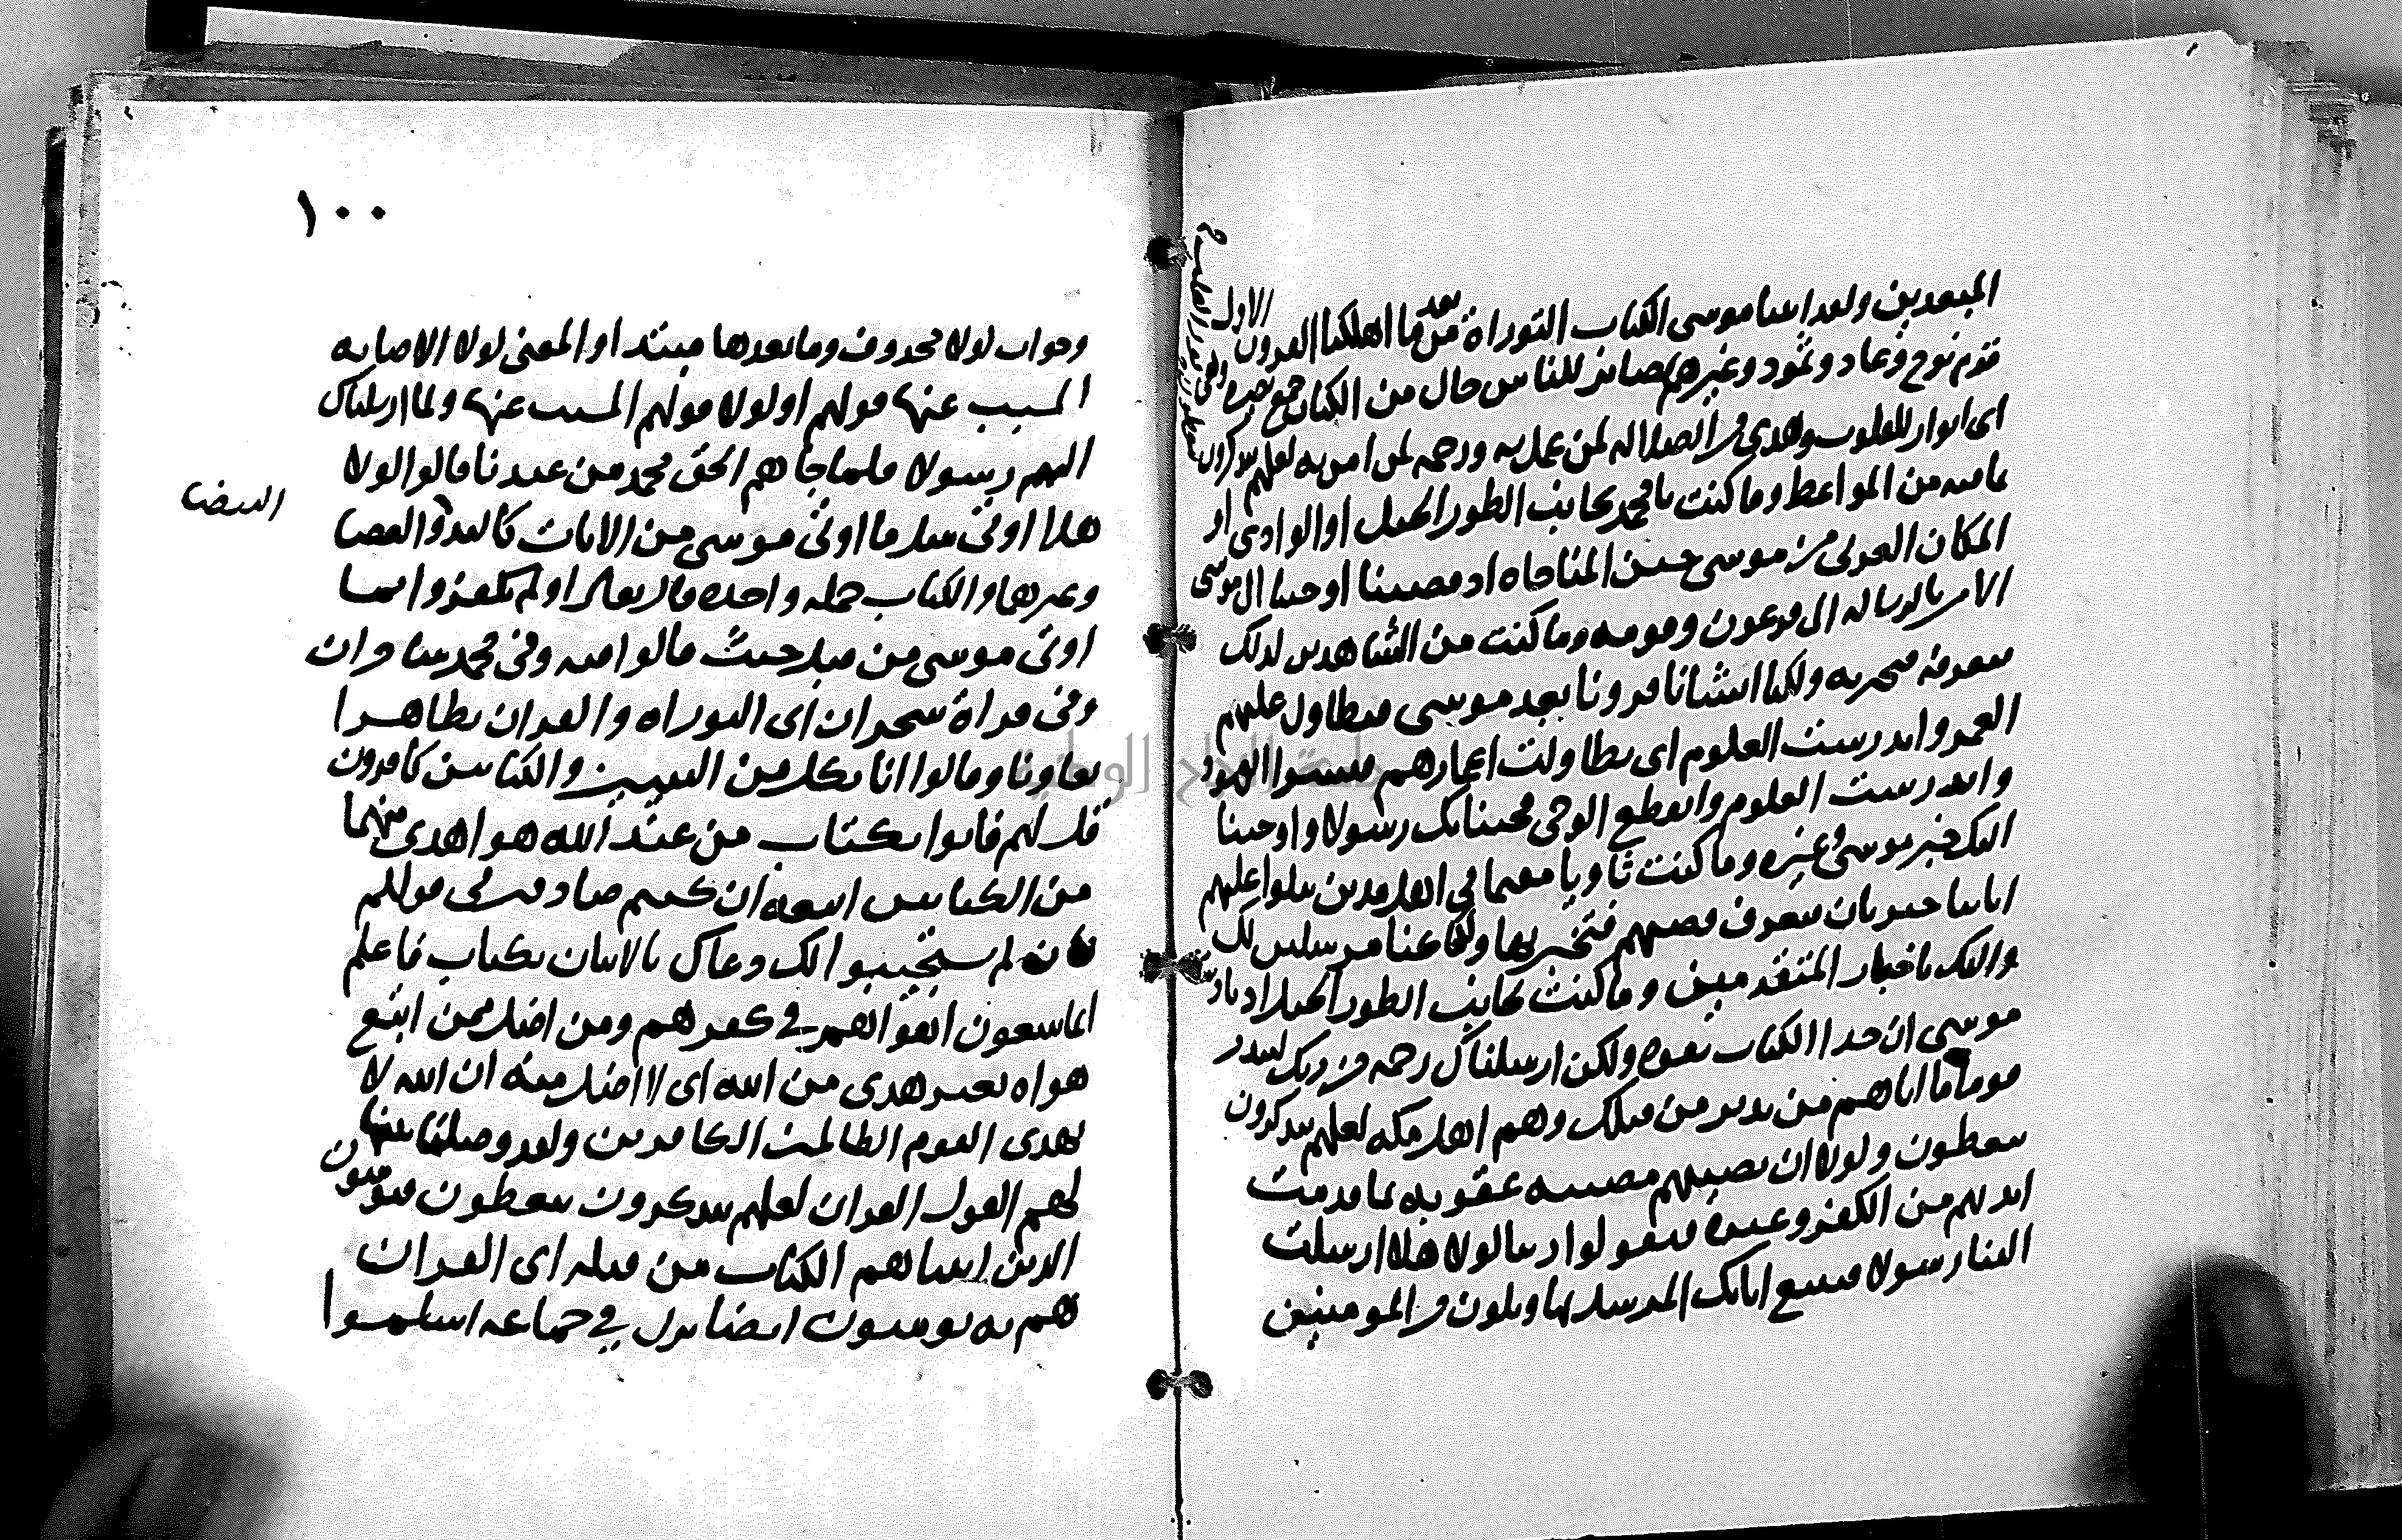 المبعدين ولقد اتينا موسى الكتاب التوراة من بعد ما اهلكنا القرون الاولى
قوم نوح وعاد وثمود وغيرهم بصائر للناس حال من الكتاب جمع بصيرة وهي نور القلب
اى انوار للقلوب وهدى من الضلالة لمن عمل به ورحمة لمن امن به لعلهم يتذكرون يتعظون
بما فيه من المواعظ وما كنت يا محمد بجانب الطور الجبل او الوادى او
المكان الغربى من موسى حين المناجاه اذ قضينا اوحينا الى موسى
الامر بالرسالة الى فرعون وقومه وما كنت من الشاهدين لذلك
فتعرفه فتخبر به ولكنا انشانا قرونا بعد موسى فتطاول عليهم
العمر واندرست العلوم اى تطاولت اعمارهم فنسوا العهود
واندرست العلوم وانقطع الوحى فجئنا بك رسولا واوحينا
اليك خبر موسى وغيره وما كنت ثاويا مقيما في اهل مدين تتلوا عليهم
اياتنا خبر ثان فتعرف قصتهم فتخبر بها ولكنا كنا مرسلين لك
واليك باخبار المتقدمين وما كنت بجانب الطور الجبل اذ نادينا
موسى ان خذ الكتاب بقوة ولكن ارسلناك رحمة من ربك لتنذر
قوما ما اتاهم من نذير من قبلك وهم اهل مكة لعلهم يتذكرون
يتعظون ولولا ان تصيبهم مصيبة عقوبة بما قدمت
ايديهم من الكفر وغيره فيقولوا ربنا لولا هلا ارسلت
الينا رسولا فنتبع اياتك المرسل بها ونكون من المومنين
١٠٠
وجواب لولا محذوف وما بعدها مبتدا والمعنى لولا الاصابة
المسبب عنها قولهم او لولا قولهم المسبب عنها ولما ارسلناك
اليهم رسولا فلما جاهم الحق محمد من عندنا قالوا لولا
هلا اوتى مثل ما اوتى موسى من الايات كاليد والعصا
البيضا
وغيرهما والكتاب جملة واحدة قال تعالى اولم يكفروا بما
اوتى موسى من قبل حيث قالوا فيه وفى محمد ساحران
وفى قراة سحران اى التوراه والقران تظاهرا
تعاونا وقالوا انا بكل من النبيين والكتابين كافرون
قل لهم فاتوا بكتاب من عند الله هو اهدى منهما
من الكتابين اتبعه ان كنتم صادقين في قولكم
فان لم يستجيبوا لك دعاك بالاتيان بكتاب فاعلم
انما يتبعون اهواهم في كفرهم ومن اضل ممن اتبع
هواه بغير هدى من الله اى لا اضل منه ان الله لا
يهدى القوم الظالمين الكافرين ولقد وصلنا بينا
لهم القول القران لعلهم يتذكرون يتعظون فيومنون
الذين اتيناهم الكتاب من قبله اى القران
هم به يومنون ايضا نزل في جماعة اسلموا